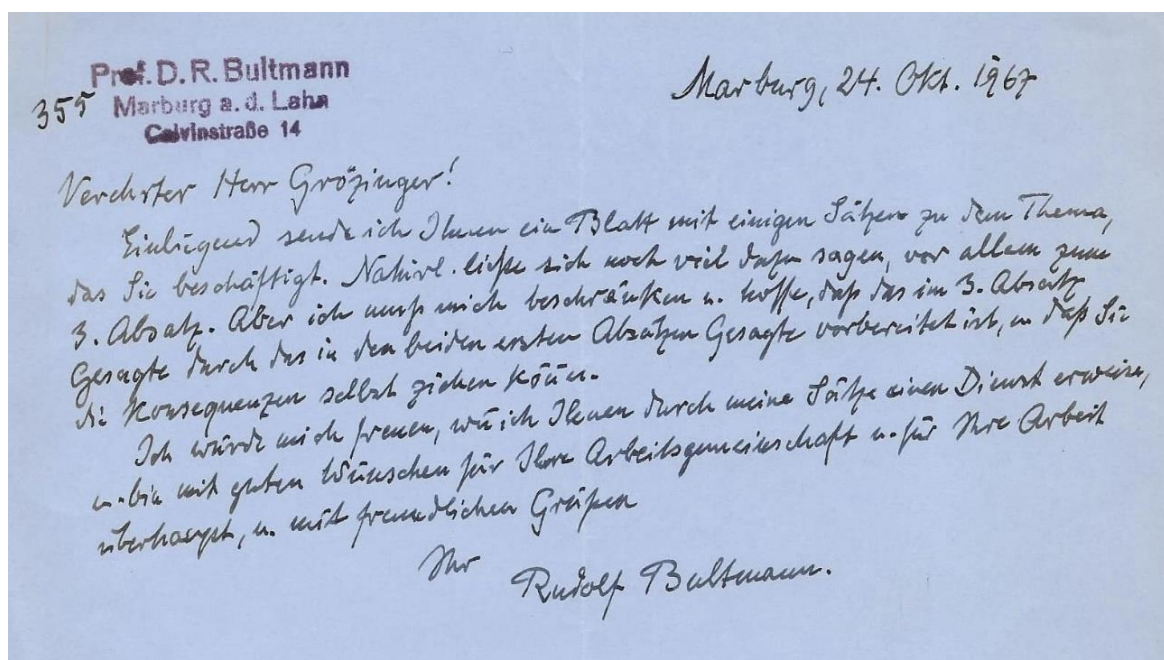 Prof. D. R. Bultmann
355 Marburg a. d. Lahn
Calvinstraße 14
Marburg, 24. Okt. 1967
Verehrter Herr Grözinger!
Einliegend sende ich Ihnen ein Blatt mit einigen Sätzen zu dem Thema,
das Sie beschäftigt. Natürl. ließe sich noch viel dazu sagen, vor allem zum
3. Absatz. Aber ich muß mich beschränken u. hoffe, daß das im 3. Absatz
Gesagte durch das in den beiden ersten Absätzen Gesagte vorbereitet ist, u. daß Sie
die Konsequenzen selbst ziehen könn̄.
Ich würde mich freuen, wn̄ ich Ihnen durch meine Sätze einen Dienst erweise,
u. bin mit guten Wünschen für Ihre Arbeitsgemeinschaft u. für Ihre Arbeit
überhaupt, u. mit freundlichen Grüßen
Ihr
Rudolf Bultmann.